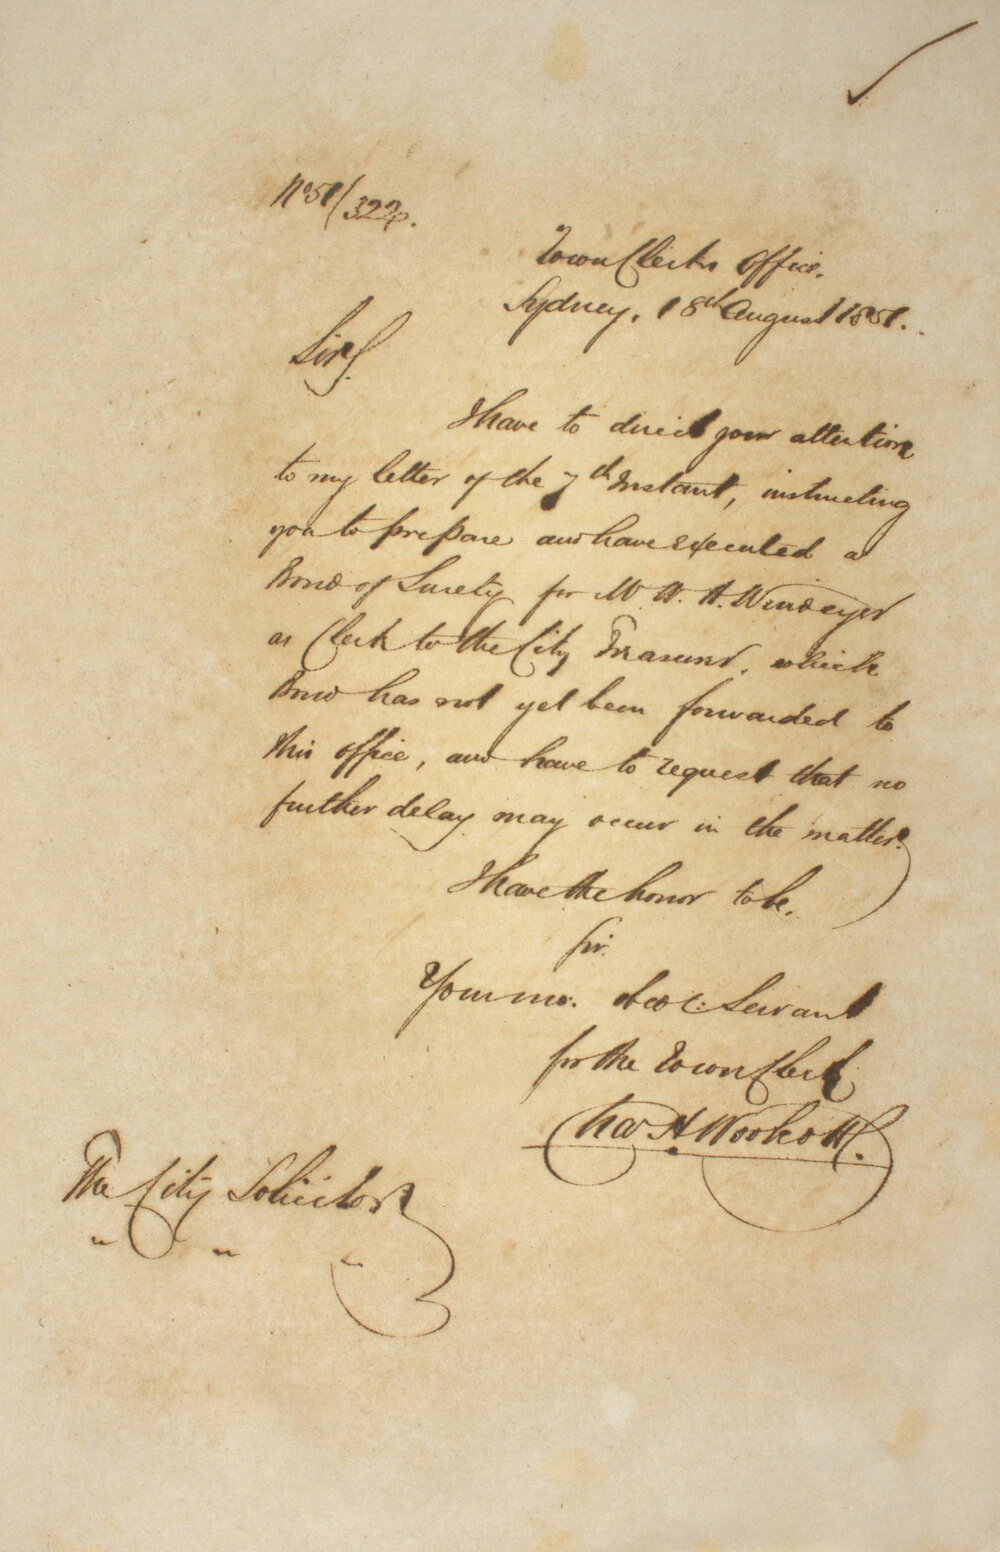 No 51/322.
Town Clerks Office.
Sydney, 18th August 1851.
Sir,
I have to direct your attention
to my letter of the 7th Instant, instructing
you to prepare and have executed a
Bond of Surety for Mr W. A. Windeyer
as Clerk to the City Treasurer, which
Bond has not yet been forwarded to
this office, and have to request that no
further delay may occur in the matter.
I have the honor to be,
Sir.
Your mo: obdt: Servant
for the Town Clerk
Chas H Woolcott.
The City Solicitor
" " "